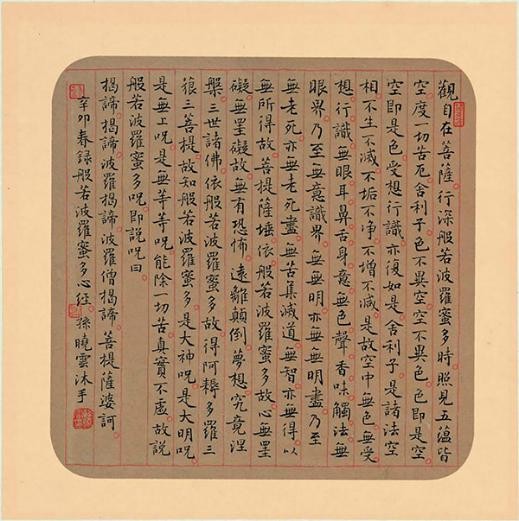 觀自在菩薩行深般若波羅蜜多時照見五蘊皆
空度一切苦厄舍利子色不異空空不異色色即是空
空即是色受想行識亦復如是舍利子是諸法空
相不生不滅不垢不淨不增不減是故空中無色無受
想行識無眼耳鼻舌身意無色聲香味觸法無
眼界乃至無意識界無無明亦無無明盡乃至
無老死亦無老死盡無苦集滅道無智亦無得以
無所得故菩提薩埵依般若波羅蜜多故心無罣
礙無罣礙故無有恐怖遠離顛倒夢想究竟涅
槃三世諸佛依般若波羅蜜多故得阿耨多羅三
藐三菩提故知般若波羅蜜多是大神咒是大明咒
是無上咒是無等等咒能除一切苦真實不虛故說
般若波羅蜜多咒即說咒曰
揭諦揭諦波羅揭諦波羅僧揭諦菩提薩婆訶
辛卯春錄般若波羅蜜多心經 孫曉雲沐手